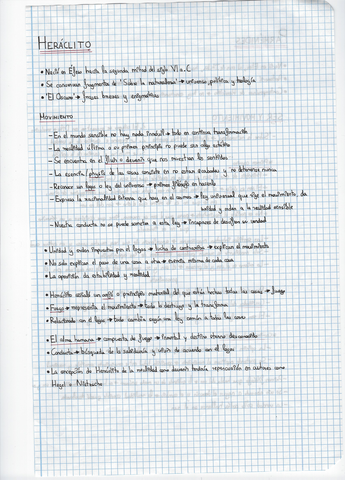 HERÁCLITO
• Nació en Éfeso hacia la segunda mitad del siglo VI a.C
• Se conservan fragmentos de "Sobre la naturaleza" → universo, política y teología
• "El Oscuro" → frases breves y enigmáticas
MOVIMIENTO
– En el mundo sensible no hay nada inmóvil → todo en continua transformación
– La realidad última o su primer principio no puede ser algo estático
– Se encuentra en el fluir o devenir que nos muestran los sentidos
– La esencia/physis de las cosas consiste en no estar acabadas y no detenerse nunca
– Reconoce un logos o ley del universo → primer filósofo en hacerlo
– Expresa la racionalidad interna que hay en el cosmos → ley universal que rige el movimiento, da
unidad y orden a la realidad sensible
– Nuestra conducta no se puede someter a esta ley → incapaces de descifrar su verdad
• Unidad y orden impuestos por el logos → lucha de contrarios → explican el movimiento
• No solo explican el paso de una cosa a otra → esencia misma de cada cosa
• La oposición da estabilidad y realidad
• Heráclito señala un arjé o principio material del que están hechas todas las cosas → fuego
• Fuego → representa el movimiento → todo lo destruye y lo transforma
• Relacionado con el logos → todo cambia según una ley común a todas las cosas
• El alma humana → compuesta de fuego → inmortal y destino eterno desconocido
• Conducta → búsqueda de la sabiduría y vivir de acuerdo con el logos
• La concepción de Heráclito de la realidad como devenir tendrá repercusión en autores como
Hegel o Nietzsche